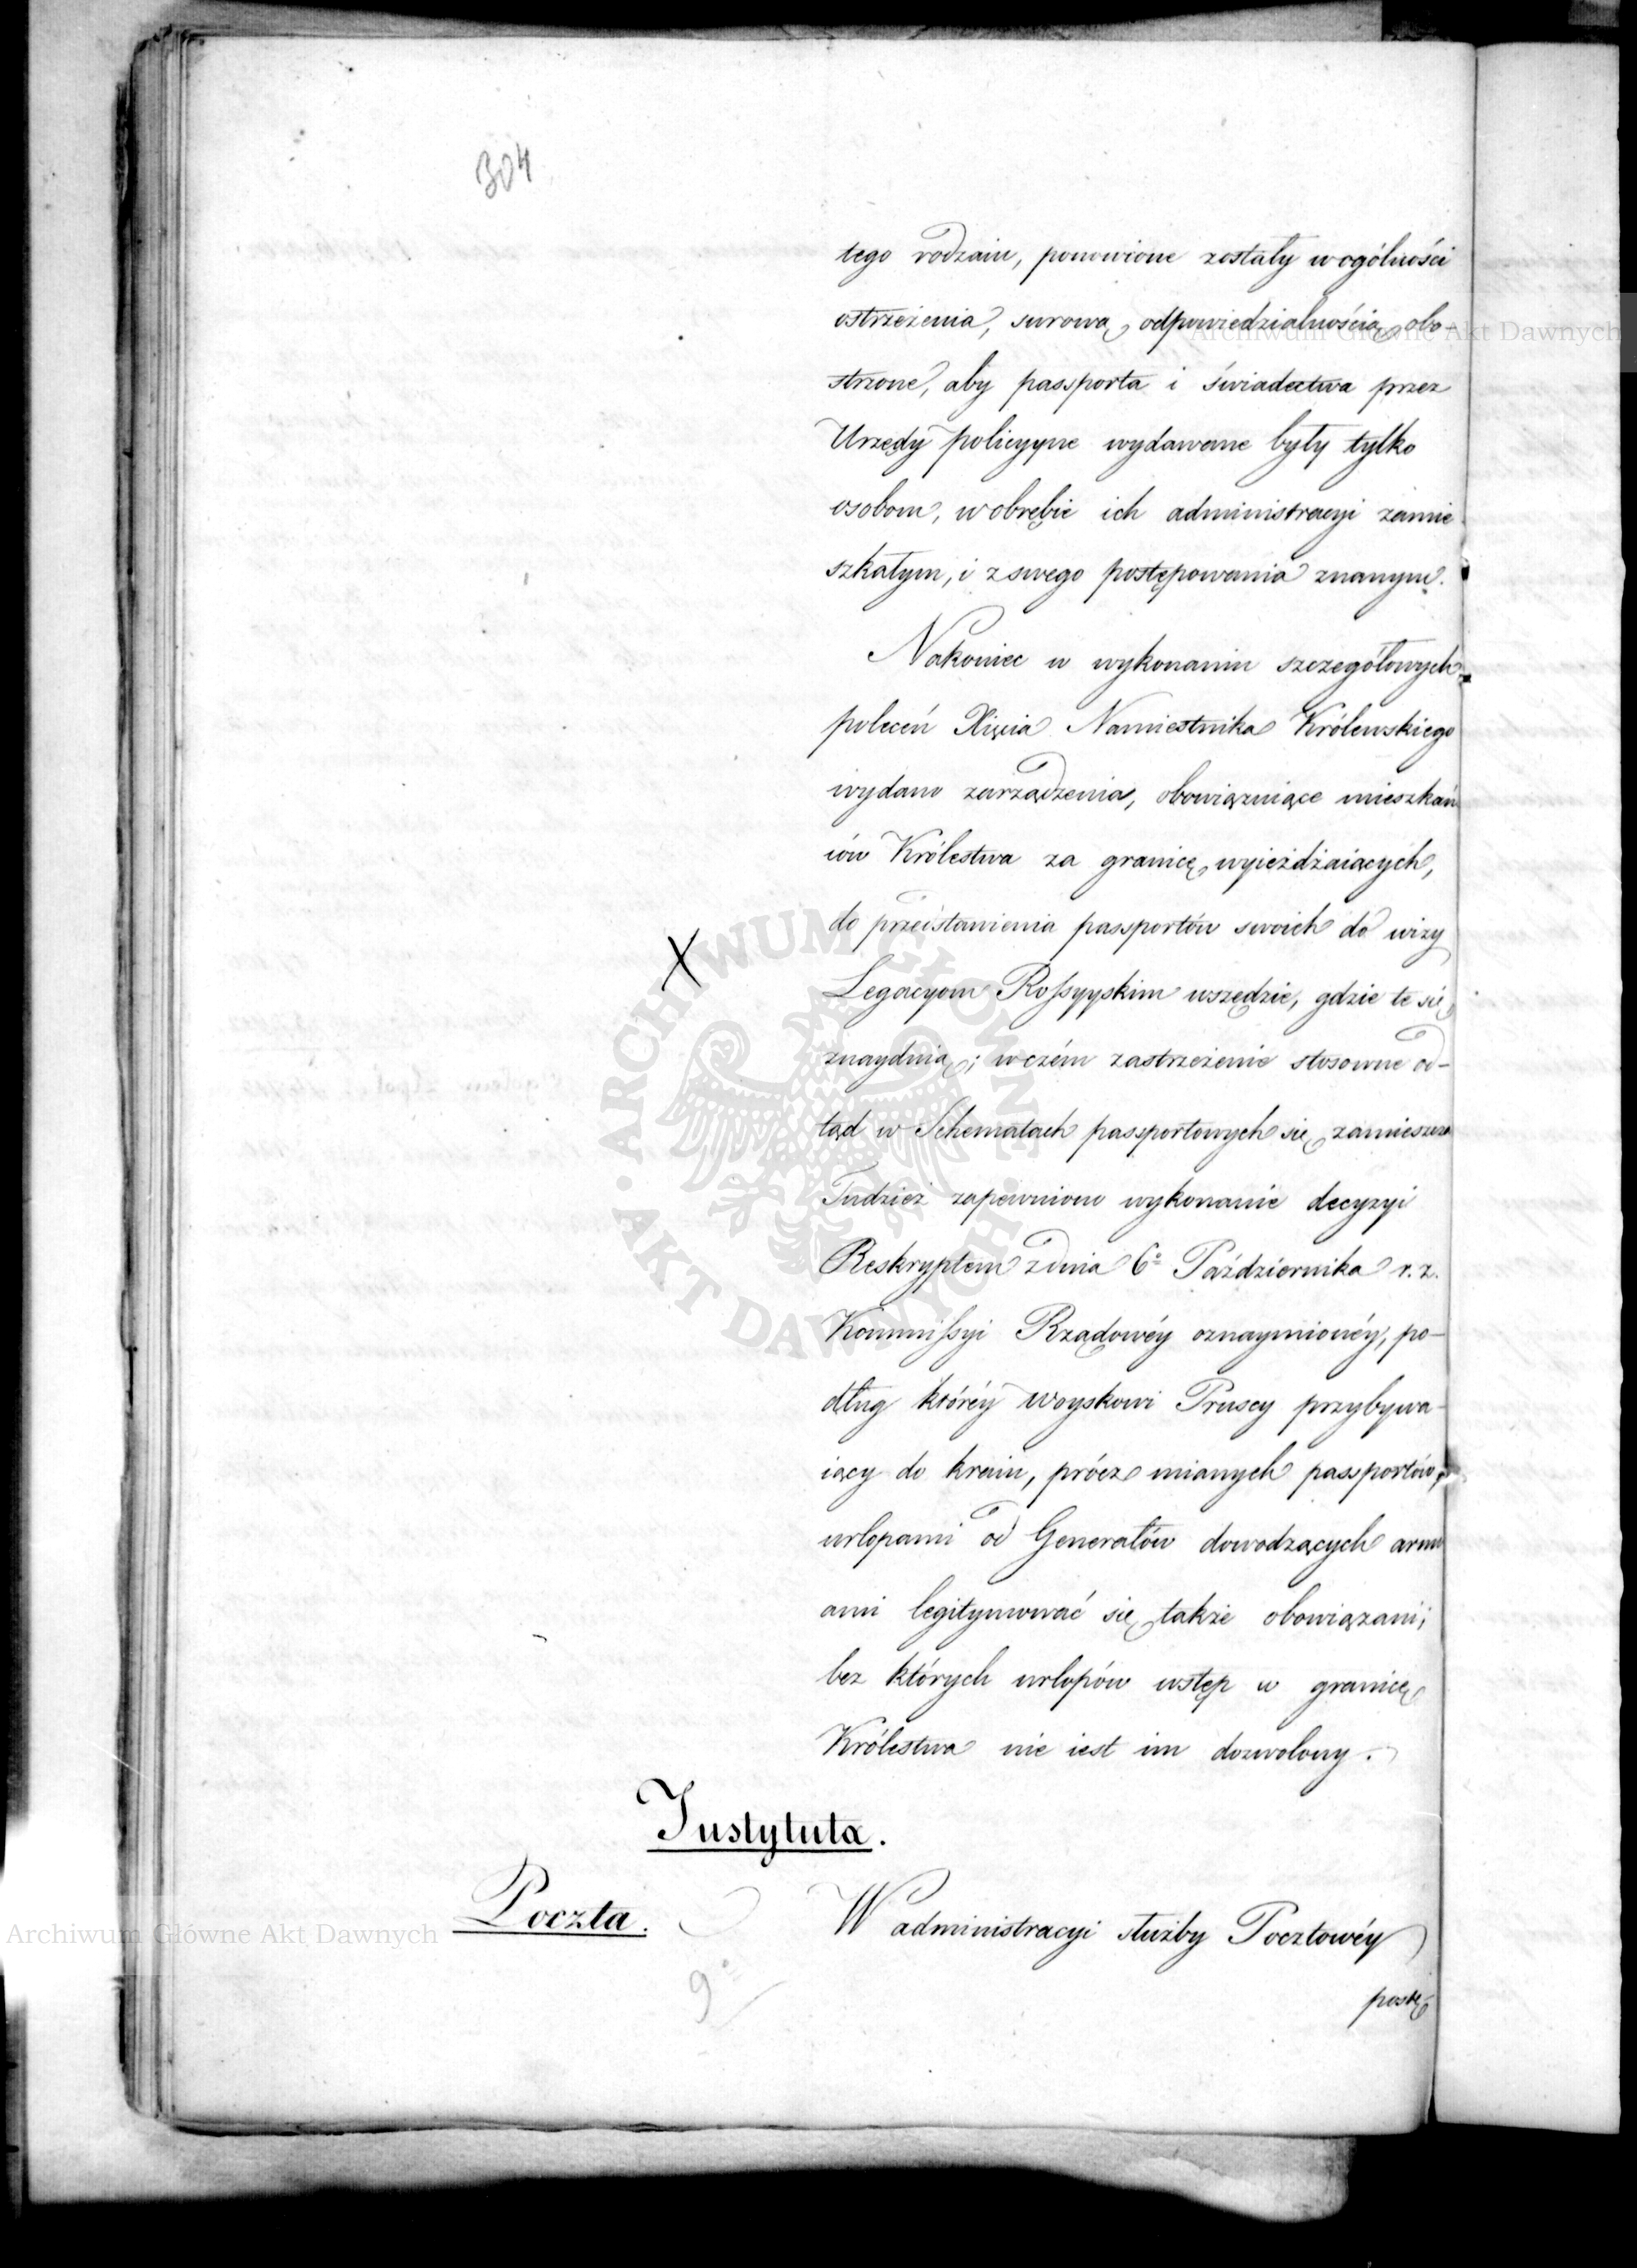 304
tego rodzaiu, ponowione zostały w ogólności
ostrzeżenia, surową odpowiedzialnością obo-
strzone, aby passporta i świadectwa przez
Urzędy policyyne wydawane były tylko
osobom, w obrębie ich administracyi zamie
szkałym, i z swego postępowania znanym.
Nakoniec w wykonaniu szczegółowych
poleceń Xięcia Namiestnika Królewskiego
wydano zarządzenia, obowiązuiące mieszkań
ców Królestwa za granicę wyieżdżaiących,
do przedstawienia passportów swoich do wizy
Legacyom Rossyyskim wszędzie, gdzie te się
znayduią; w czém zastrzeżenie stosowne od-
tąd w Schematach passportowych się zamieszcza
Tudzież zapewniono wykonanie decyzyi
Reskryptem z dnia 6º Października r. z.
Kommissyi Rządowéy oznaymionéy, po-
dług któréy woyskowi Pruscy przybywa-
iący do kraiu, prócz mianych passportów,
urlopami od Generałów dowodzących armi
ami legitymować się także obowiązani;
bez których urlopów wstęp w granicę
Królestwa nie iest im dozwolony.
Instytuta.
Poczta.
W administracyi służby Pocztowéy
9º
postę
Archiwum Główne Akt Dawnych
Archiwum Główne Akt Dawnych
ARCHIWUM GŁÓWNE
AKT DAWNYCH
X